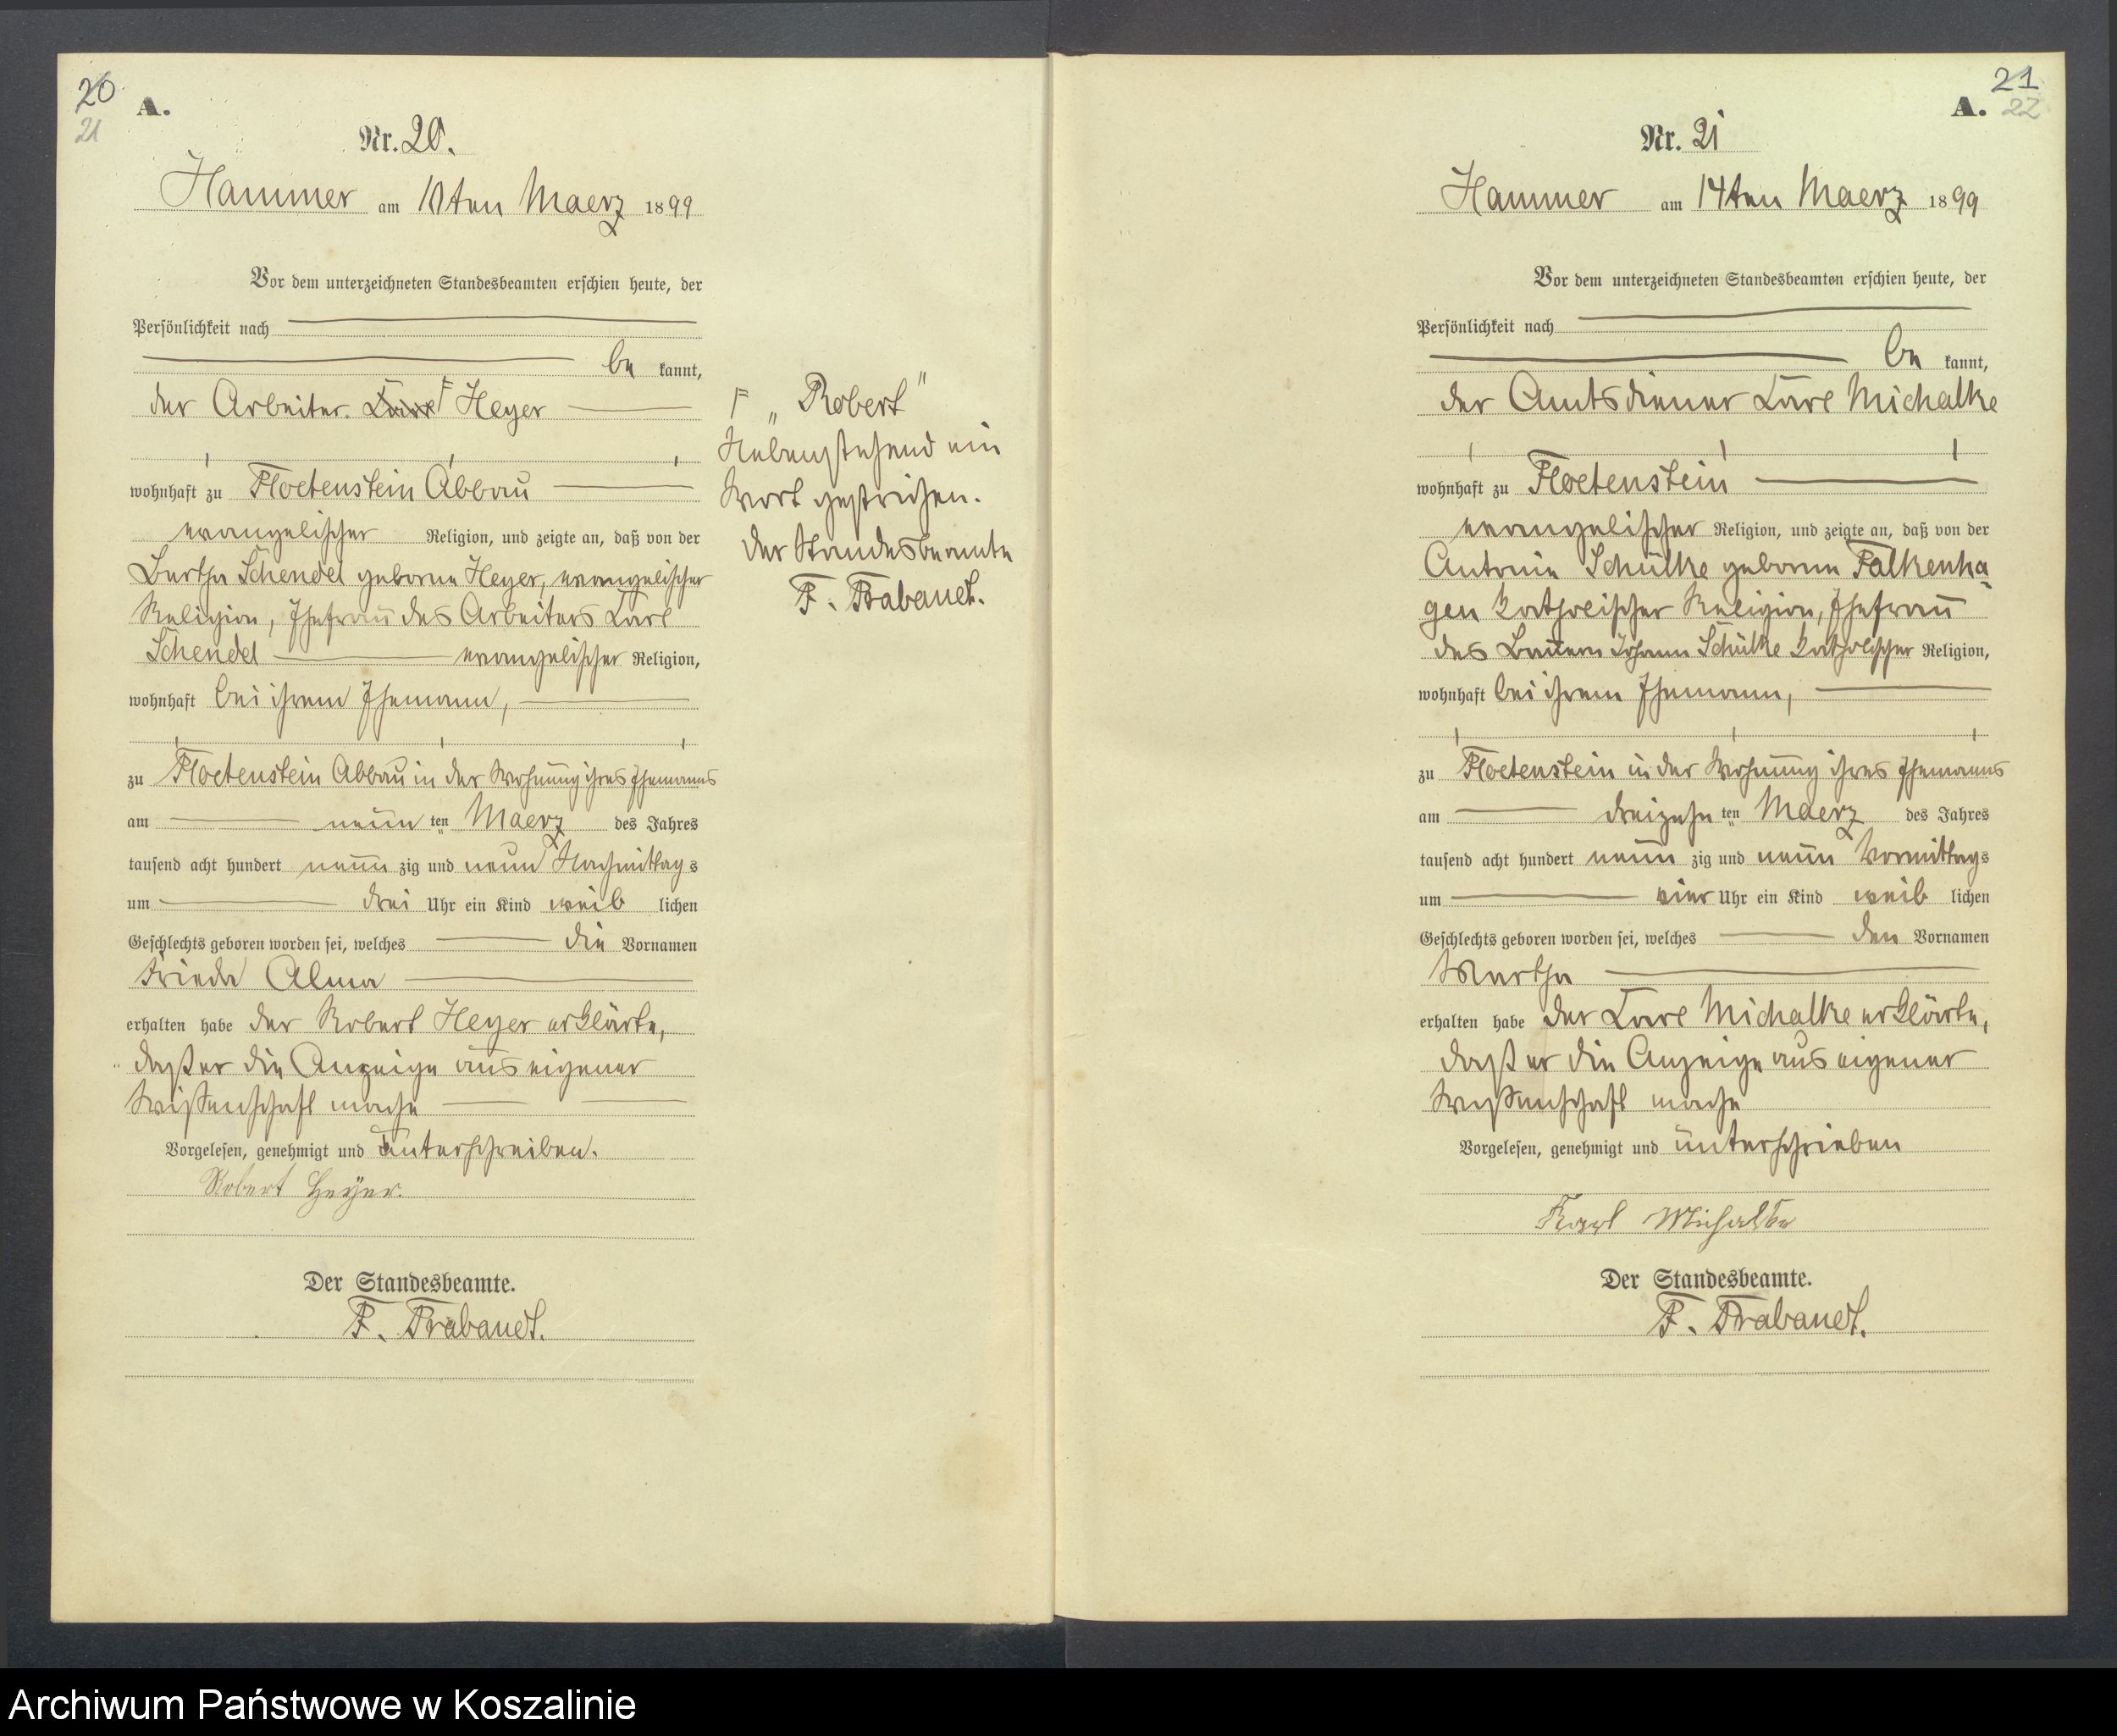 20
21
A.
Nr. 20.
Hammer am 10ten Maerz 1899
Vor dem unterzeichneten Standesbeamten erschien heute, der
Persönlichkeit nach
be kannt,
der Arbeiter Carl F Heyer
wohnhaft zu Floetenstein Abbau
evangelischer Religion, und zeigte an, daß von der
Bertha Schendel geborne Heyer, evangelischer
Religion, Ehefrau des Arbeiters Carl
Schendel evangelischer Religion,
wohnhaft bei ihrem Ehemann,
zu Floetenstein Abbau in der Wohnung ihres Ehemanns
am neun ten Maerz des Jahres
tausend acht hundert neun zig und neun Nachmittag s
um drei Uhr ein Kind weib lichen
Geschlechts geboren worden sei, welches die Vornamen
Frieda Alma
erhalten habe der Robert Heyer erklärte,
daß er die Anzeige aus eigener
Wissenschaft mache
Vorgelesen, genehmigt und unterschreiben.
Robert Heyer.
Der Standesbeamte.
F. Trabandt.
F „Robert"
Nebenstehend ein
Wort gestrichen.
Der Standesbeamte
F. Trabandt.
21
A. 22
Nr. 21
Hammer am 14ten Maerz 1899
Vor dem unterzeichneten Standesbeamten erschien heute, der
Persönlichkeit nach
be kannt,
der Amtsdiener Carl Michalke
wohnhaft zu Floetenstein
evangelischer Religion, und zeigte an, daß von der
Antonie Schülke geborne Falkenha-
gen katholischer Religion, Ehefrau
des Bauern Johann Schülke katholischer Religion,
wohnhaft bei ihrem Ehemann,
zu Floetenstein in der Wohnung ihres Ehemanns
am dreizehn ten Maerz des Jahres
tausend acht hundert neun zig und neun Vormittag s
um vier Uhr ein Kind weib lichen
Geschlechts geboren worden sei, welches den Vornamen
Martha
erhalten habe der Carl Michalke erklärte,
daß er die Anzeige aus eigener
Wissenschaft mache
Vorgelesen, genehmigt und unterschrieben
Karl Michalke
Der Standesbeamte.
F. Trabandt.
Archiwum Państwowe w Koszalinie